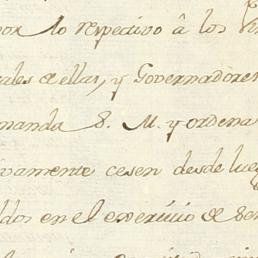 por lo respectivo â los Vir
ales de ellas, y Governadores
manda S. M. y ordena
ivamente cesen desde lueg
ldos en el exercicio de